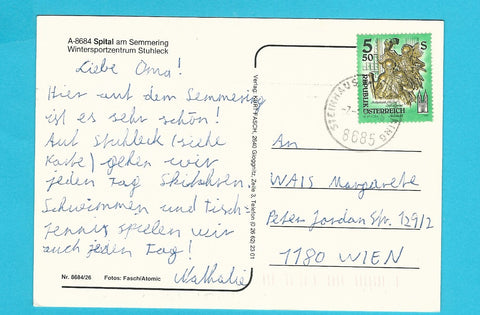 A-8684 Spital am Semmering
Wintersportzentrum Stuhleck
Liebe Oma!
Hier auf dem Semmering
ist es sehr schön!
Auf Stuhleck (siehe
Karte) gehen wir
jeden Tag Skifahren.
Schwimmen und Tisch-
tennis spielen wir
auch jeden Tag!
Nathalie
Nr. 8684/26 Fotos: Fasch/Atomic
Verlag KURT FASCH, 2640 Gloggnitz, Zeile 3, Telefon
5
50
S
REPUBLIK
ÖSTERREICH
STEINHAUS
8685
An
WAIS Margarete
Peter Jordan Str. 129/2
1180 WIEN